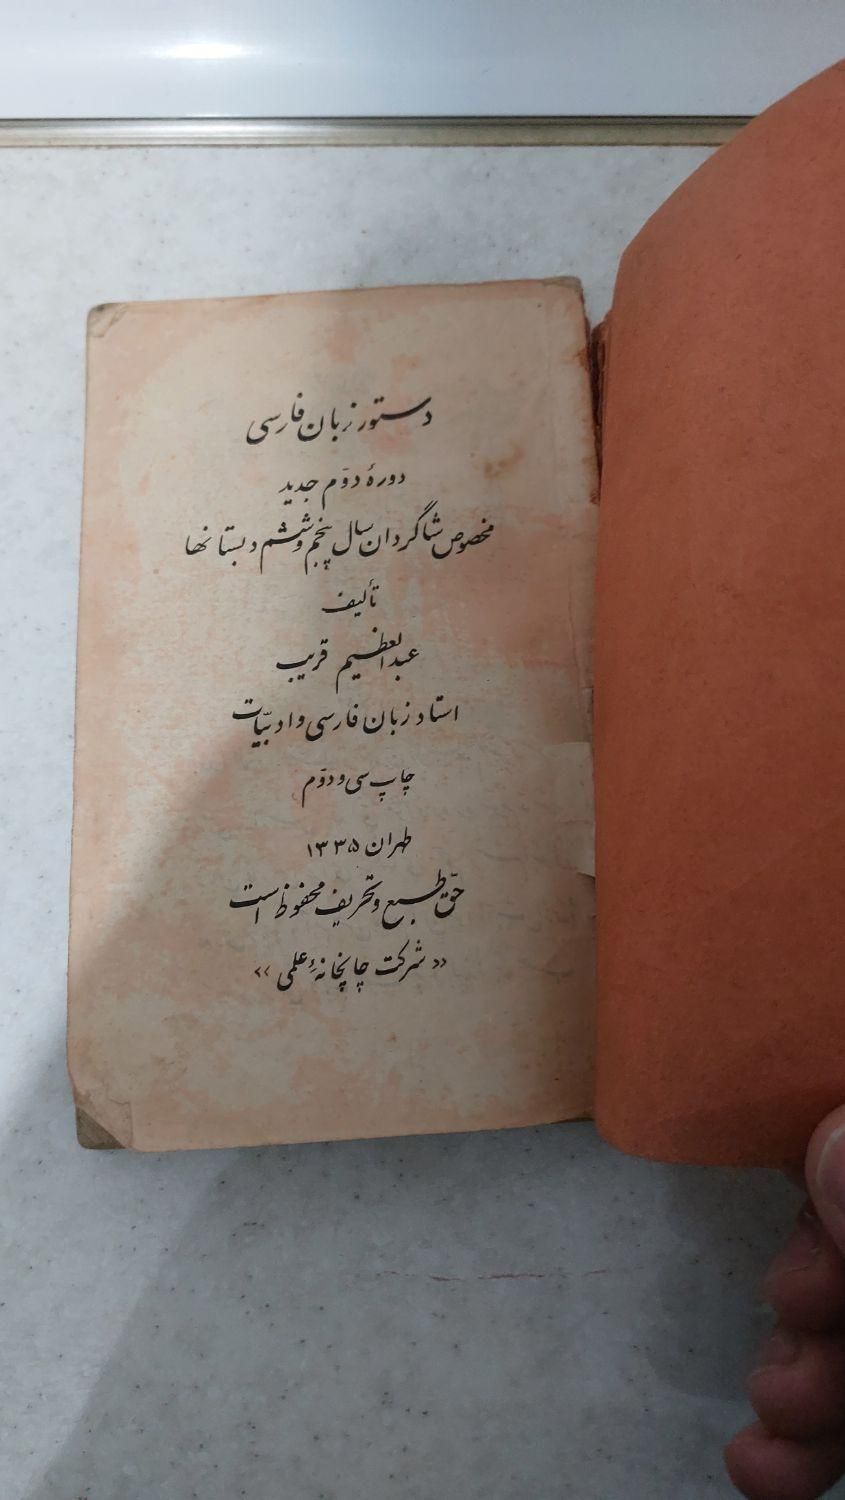 دستور زبان فارسی
دورهٔ دوّم جدید
مخصوص شاگردان سال پنجم و ششم دبستانها
تألیف
عبدالعظیم قریب
استاد زبان فارسی و ادبیّات
چاپ سی و دوّم
طهران ۱۳۳۵
حقّ طبع و تحریف محفوظ است
«شرکت چاپخانهٔ علمی»